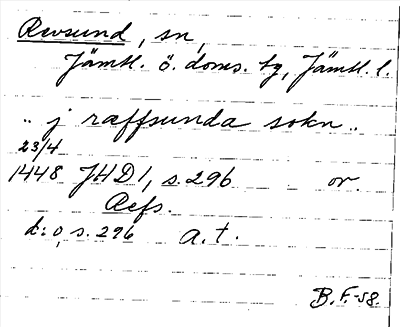 Revsund, sn,
Jämtl. ö. doms. tg, Jämtl. l.
"j ræffsunda sokn"
23/4
1448 JHD1, s. 296 or.
Avfs.
d:o, s. 296 a. t.
B.F.-58.